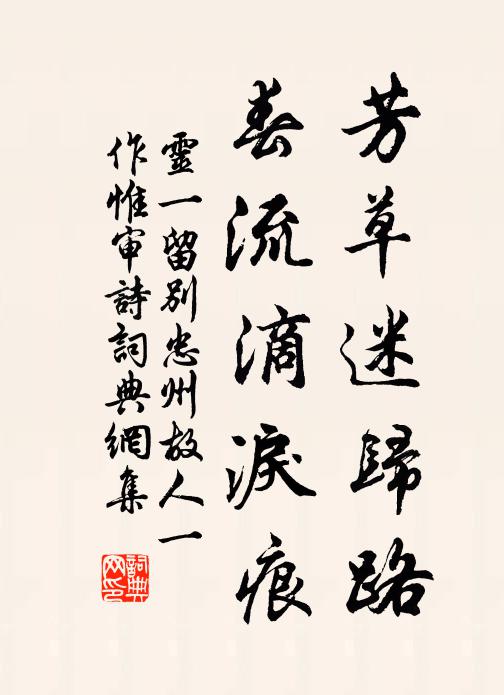 芳草迷歸路
春流滴淚痕
靈一留別忠州故人一
作惟审詩詞典網集
詞典
网印